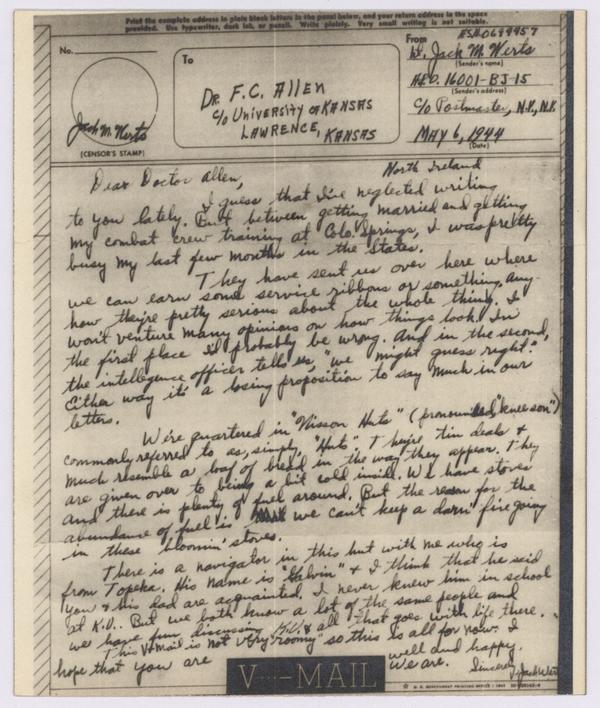 Print the complete address in plain block letters in the panel below, and your return address in the space
provided. Use typewriter, dark ink, or pencil. Write plainly. Very small writing is not suitable.
No.
To
From
Lt. Jack M. Werts
(Sender's name)
A.P.O. 16001-BJ-15
(Sender's address)
c/o Postmaster, N.Y., N.Y.
MAY 6, 1944
(Date)
Dr. F.C. Allen
c/o University of Kansas
Lawrence, Kansas
Jack M. Werts
(CENSOR'S STAMP)
North Ireland
Dear Doctor Allen,
I guess that I've neglected writing
to you lately. But between getting married and getting
my combat crew training at Colo. Springs, I was pretty
busy my last few months in the States.
They have sent us over here where
we can earn some service ribbons or something. Any-
how they're pretty serious about the whole thing. I
won't venture many opinions on how things look. In
the first place I'd probably be wrong. And in the second,
the intellegence officer tells us, "we might guess right."
Either way it's a losing proposition to say much in our
letters.
We're quartered in "Nisson Huts" (pronounced, "kneeson")
commonly referred to as, simply, "Huts". They're tin deals &
much resemble a loaf of bread in the way they appear. They
are given over to being a bit cold inside. We have stoves
and there is plenty of fuel around. But the reason for the
abundance of fuel is we can't keep a darn' fire going
in these bloomin' stoves.
There is a navigator in this hut with me who is
from Topeka. His name is "Galvin" & I think that he said
you & his dad are acquainted. I never knew him in school
at K.U.. But we both know a lot of the same people and
we have fun discussing K.U. & all that goes with life there.
This V-mail is not very "roomy" so this is all for now. I
hope that you are well and happy.
We are.
Sincerely,
Jack Werts
V···—MAIL
U. S. GOVERNMENT PRINTING OFFICE : 1943